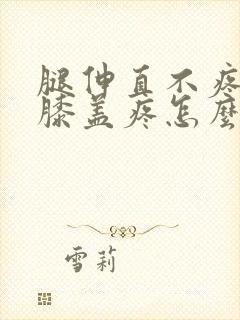 腿伸直不疼
膝盖疼怎麼
雪莉